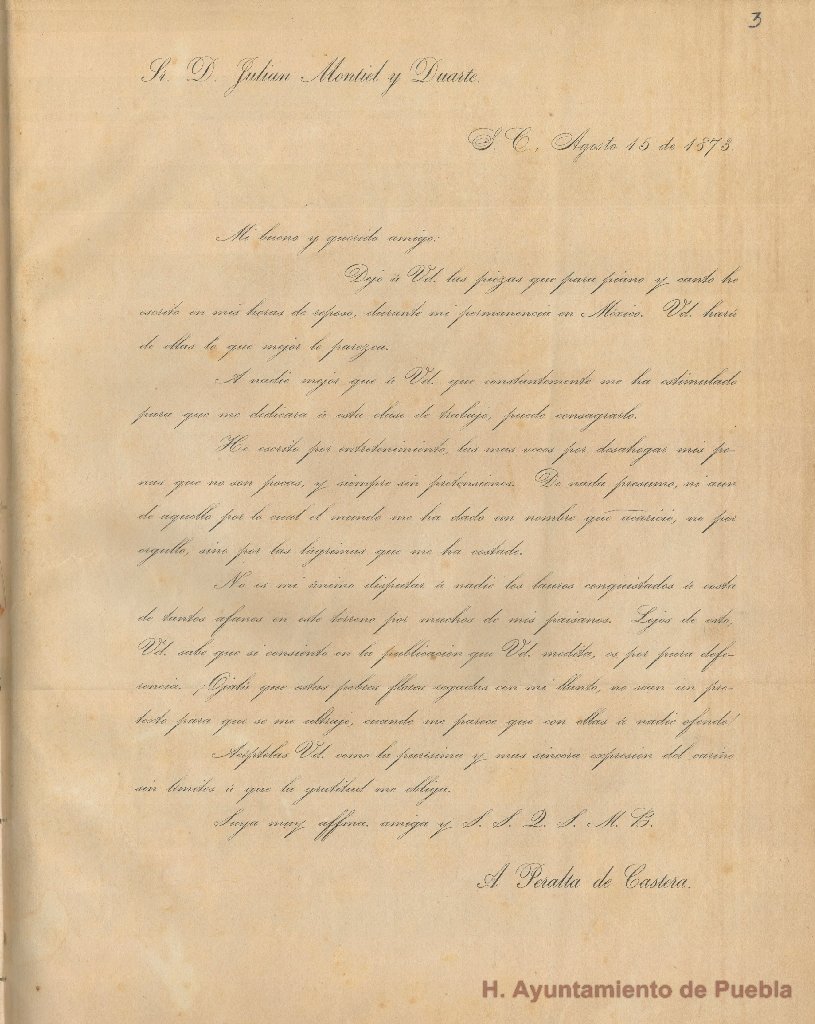 3
Sr. D. Julian Montiel y Duarte.
S. C., Agosto 15 de 1873.
Mi bueno y querido amigo:
Dejo á Vd. las piezas que para piano y canto he
escrito en mis horas de reposo, durante mi permanencia en México. Vd. hará
de ellas lo que mejor le parezca.
A nadie mejor que á Vd. que constantemente me ha estimulado
para que me dedicara á esta clase de trabajo, puedo consagrarlo.
He escrito por entretenimiento, las mas veces por desahogar mis pe-
nas que no son pocas, y siempre sin pretensiones. De nada presumo, ni aun
de aquello por lo cual el mundo me ha dado un nombre que acaricio, no por
orgullo, sino por las lágrimas que me ha costado.
No es mi ánimo disputar á nadie los lauros conquistados á costa
de tantos afanes en este terreno por muchos de mis paisanos. Lejos de esto,
Vd. sabe que si consiento en la publicacion que Vd. medita, es por pura defe-
rencia. ¡Ojalá que estas pobres flores regadas con mi llanto, no sean un pre-
testo para que se me ultraje, cuando me parece que con ellas á nadie ofendo!
Acéptelas Vd. como la purísima y mas sincera expresion del cariño
sin límites á que la gratitud me obliga.
Suya muy affma. amiga y S. S. Q. S. M. B.
A Peralta de Castera.
H. Ayuntamiento de Puebla